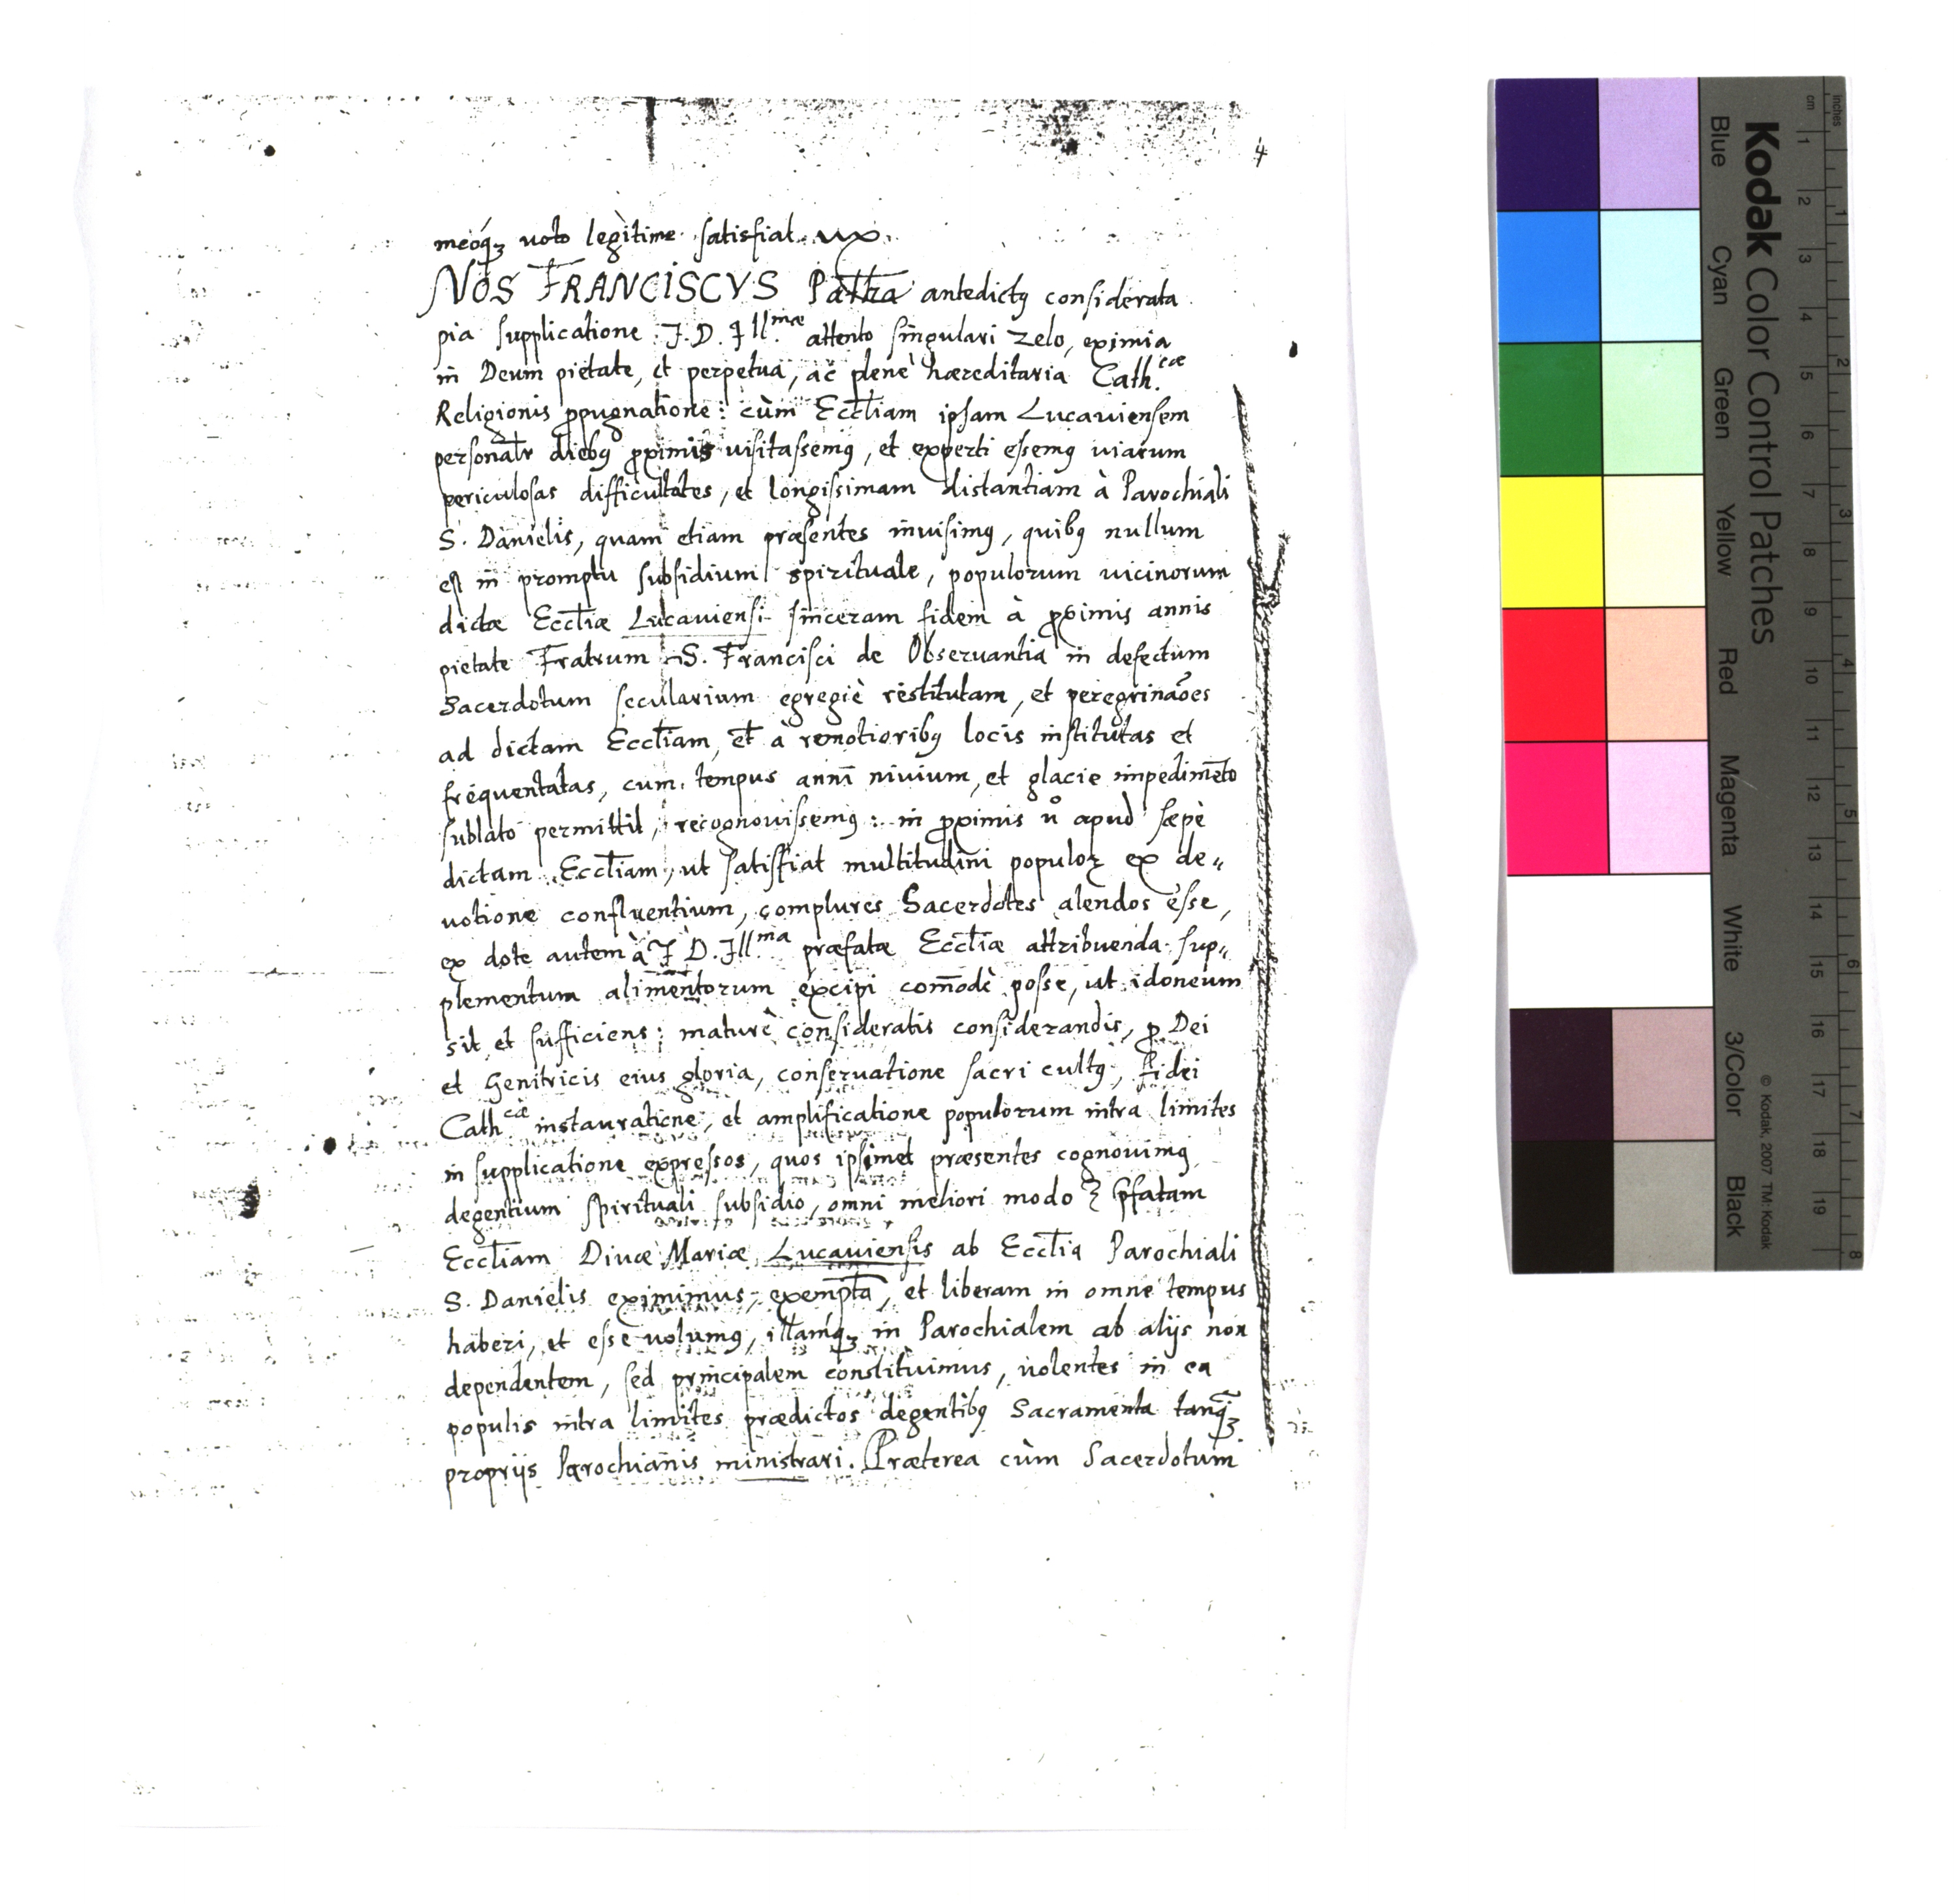 4
meoq; uoto legìtime satisfiat.
NOS FRANCISCVS Pattra antedictꝰ considerata
pia supplicatione J. D. Jll.mæ attento singulari zelo, eximia
in Deum pietate, et perpetua, ac plenè hæreditaria Cath.cæ
Religionis ꝓpugnatione: cùm Ecctiam ipsam Lucauiensem
personatr diebꝰ ꝓximis uisitassemꝰ, et experti essemꝰ uiarum
periculosas difficultates, et longissimam distantiam à Parochiali
S. Danielis, quam etiam præsentes inuisimꝰ, quibꝰ nullum
est in promptu subsidium spirituale, populorum uicinorum
dictæ Ecctiæ Lucauiensi sinceram fidem à ꝓximis annis
pietate Fratrum S. Francisci de Obseruantia in defectum
Sacerdotum secularium egregiè restitutam, et peregrinaões
ad dictam Ecctiam, et à remotioribꝰ locis institutas et
fréquentatas, cum tempus anni niuium, et glacie impedimēto
sublato permittit, recognouissemꝰ: in ꝓximis uº apud sæpè
dictam Ecctiam, ut satisfiat multitudini populoꝝ ex de„
uotione confluentium, complures Sacerdotes alendos esse,
ex dote autem à J D. Jll.ma præfatæ Ecctiæ attribuenda sup„
plementum alimentorum excipi com̄odè posse, ut idoneum
sit et sufficiens: maturè consideratis considerandis, ꝓ Dei
et Genitricis eius gloria, conseruatione sacri cultꝰ, Fidei
Cath.cæ instauratione, et amplificatione populorum intra limites
in supplicatione expressos, quos ipsimet præsentes cognouimꝰ
degentium spirituali subsidio, omni meliori modo ⁊ p̄fatam
Ecctiam Diuæ Mariæ Lucauiensis ab Ecctia Parochiali
S. Danielis eximimus, exemptā, et liberam in omne tempus
haberi, et esse uolumꝰ, illamq; in Parochialem ab alijs non
dependentem, sed principalem constituimus, uolentes in ea
populis intra limites prædictos degentibꝰ Sacramenta tanq̃;
proprijs Parochianis ministrari. Præterea cùm Sacerdotum
Kodak Color Control Patches
Blue
Cyan
Green
Yellow
Red
Magenta
White
3/Color
Black
© Kodak, 2007 TM: Kodak
cm 1 2 3 4 5 6 7 8 9 10 11 12 13 14 15 16 17 18 19
inches 1 2 3 4 5 6 7 8